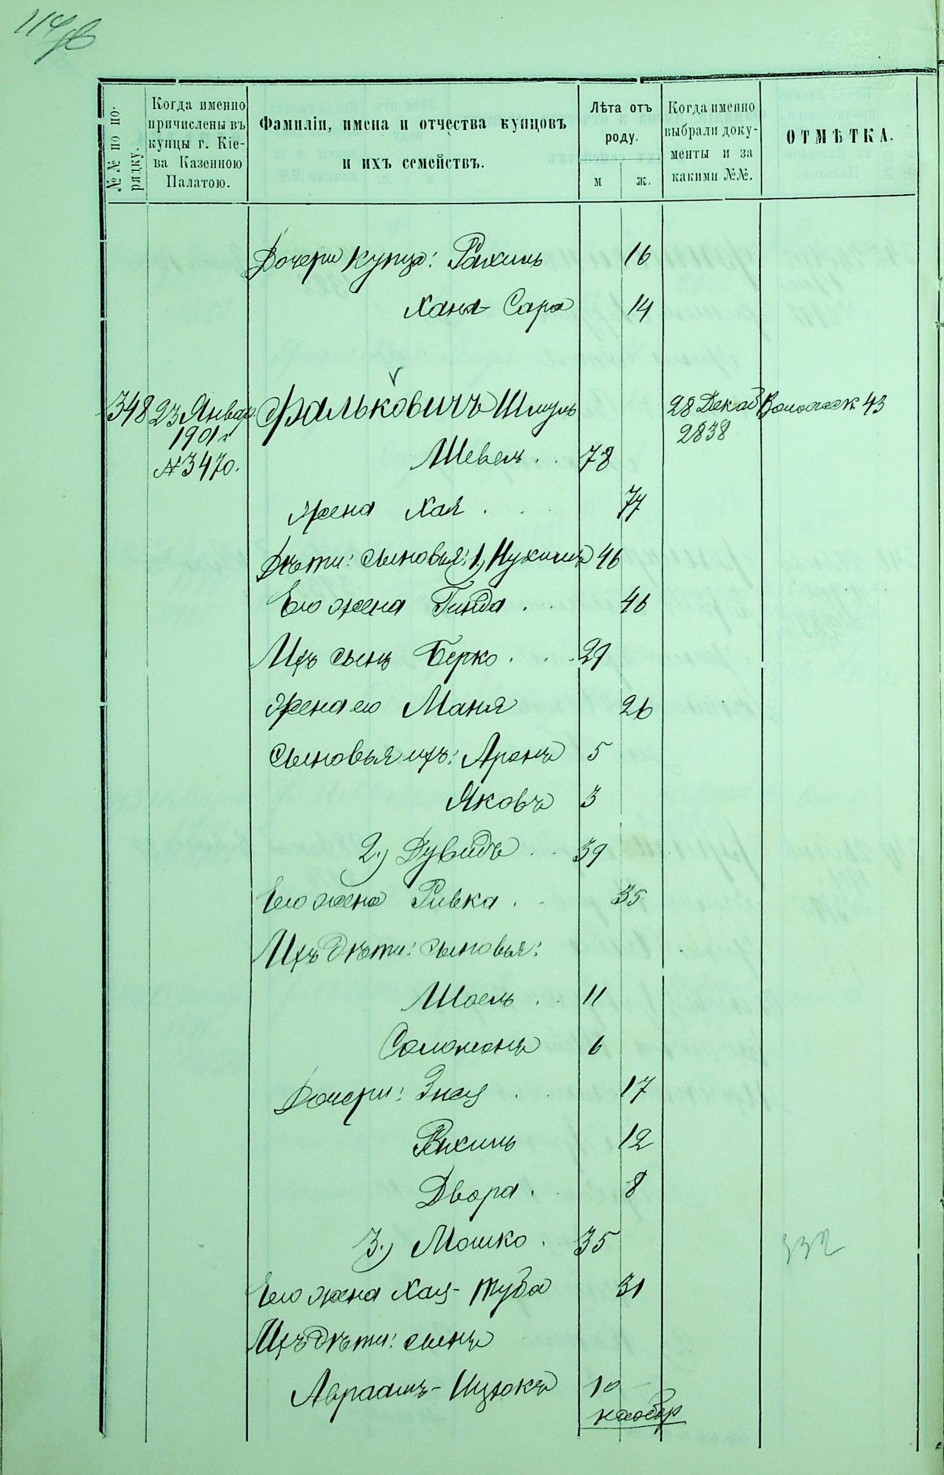 114 об
№№ по порядку.
Когда именно причислены въ купцы г. Кіева Казенною Палатою.
Фамиліи, имена и отчества купцовъ и ихъ семействъ.
Лѣта отъ роду.
м
ж.
Когда именно выбрали документы и за какими №№.
ОТМѢТКА.
Дочери купца: Рахиль 16
Хана-Сара 14
348 23 Января Фальковичъ Шмуль 28 Декаб 43
1901 г 2838
№ 3470. Шевель . . 78
жена Хая . 74
Дѣти: сыновья: 1) Нухимъ 46
Его жена Гинда . . 46
Ихъ сынъ Берко . . . 29
Жена его Маня 26
Сыновья ихъ: Аронъ 5
Яковъ 3
2) Дувидъ . . 39
Его жена Ривка . . 35
Ихъ дѣти: сыновья:
Шоель . . 11
Соломонъ 6
Дочери: Энея . . 17
Рахиль 12
Двора . . 8
3) Мошко . 35
332
Его жена Хая-Туба 31
Ихъ дѣти: сынъ
Авраамъ-Ицхокъ 10
наобор